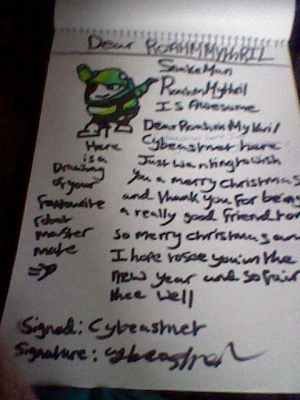 Dear ROAHMMYTHRIL
SnakeMan
RoahmMythril
Is Awesome
Dear RoahmMythril
Cybeastnet here
Just wanting to wish
you a merry Christmas
and thank you for being
a really good friend
so merry christmas
I hope to see you in the
new year and so fair
thee well
Here
is a
Drawing
of your
Favourite
robot
master
mate
Signed: Cybeastnet
Signature: cybeastnet